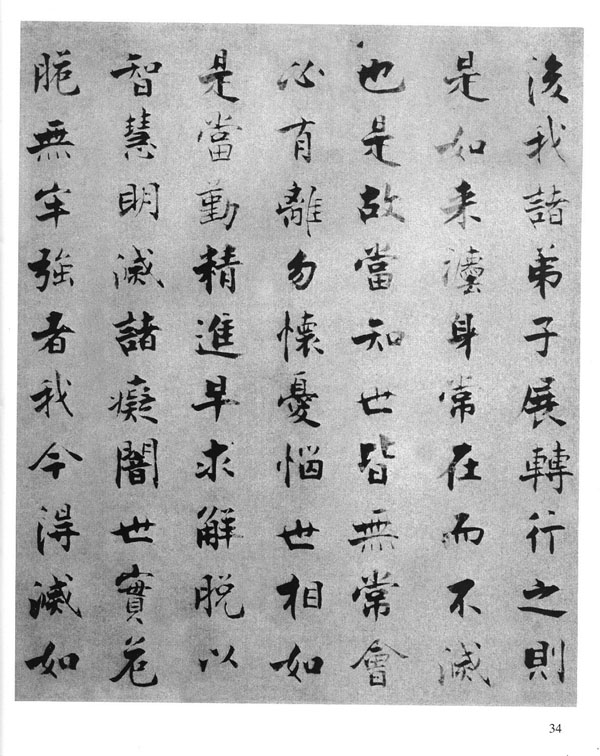 後我諸弟子展轉行之則
是如来灋身常在而不滅
也是故當知世皆無常會
必有離勿懷憂惱世相如
是當勤精進早求解脱以
智慧明滅諸癡闇世實危
脆無牢強者我今得滅如
34